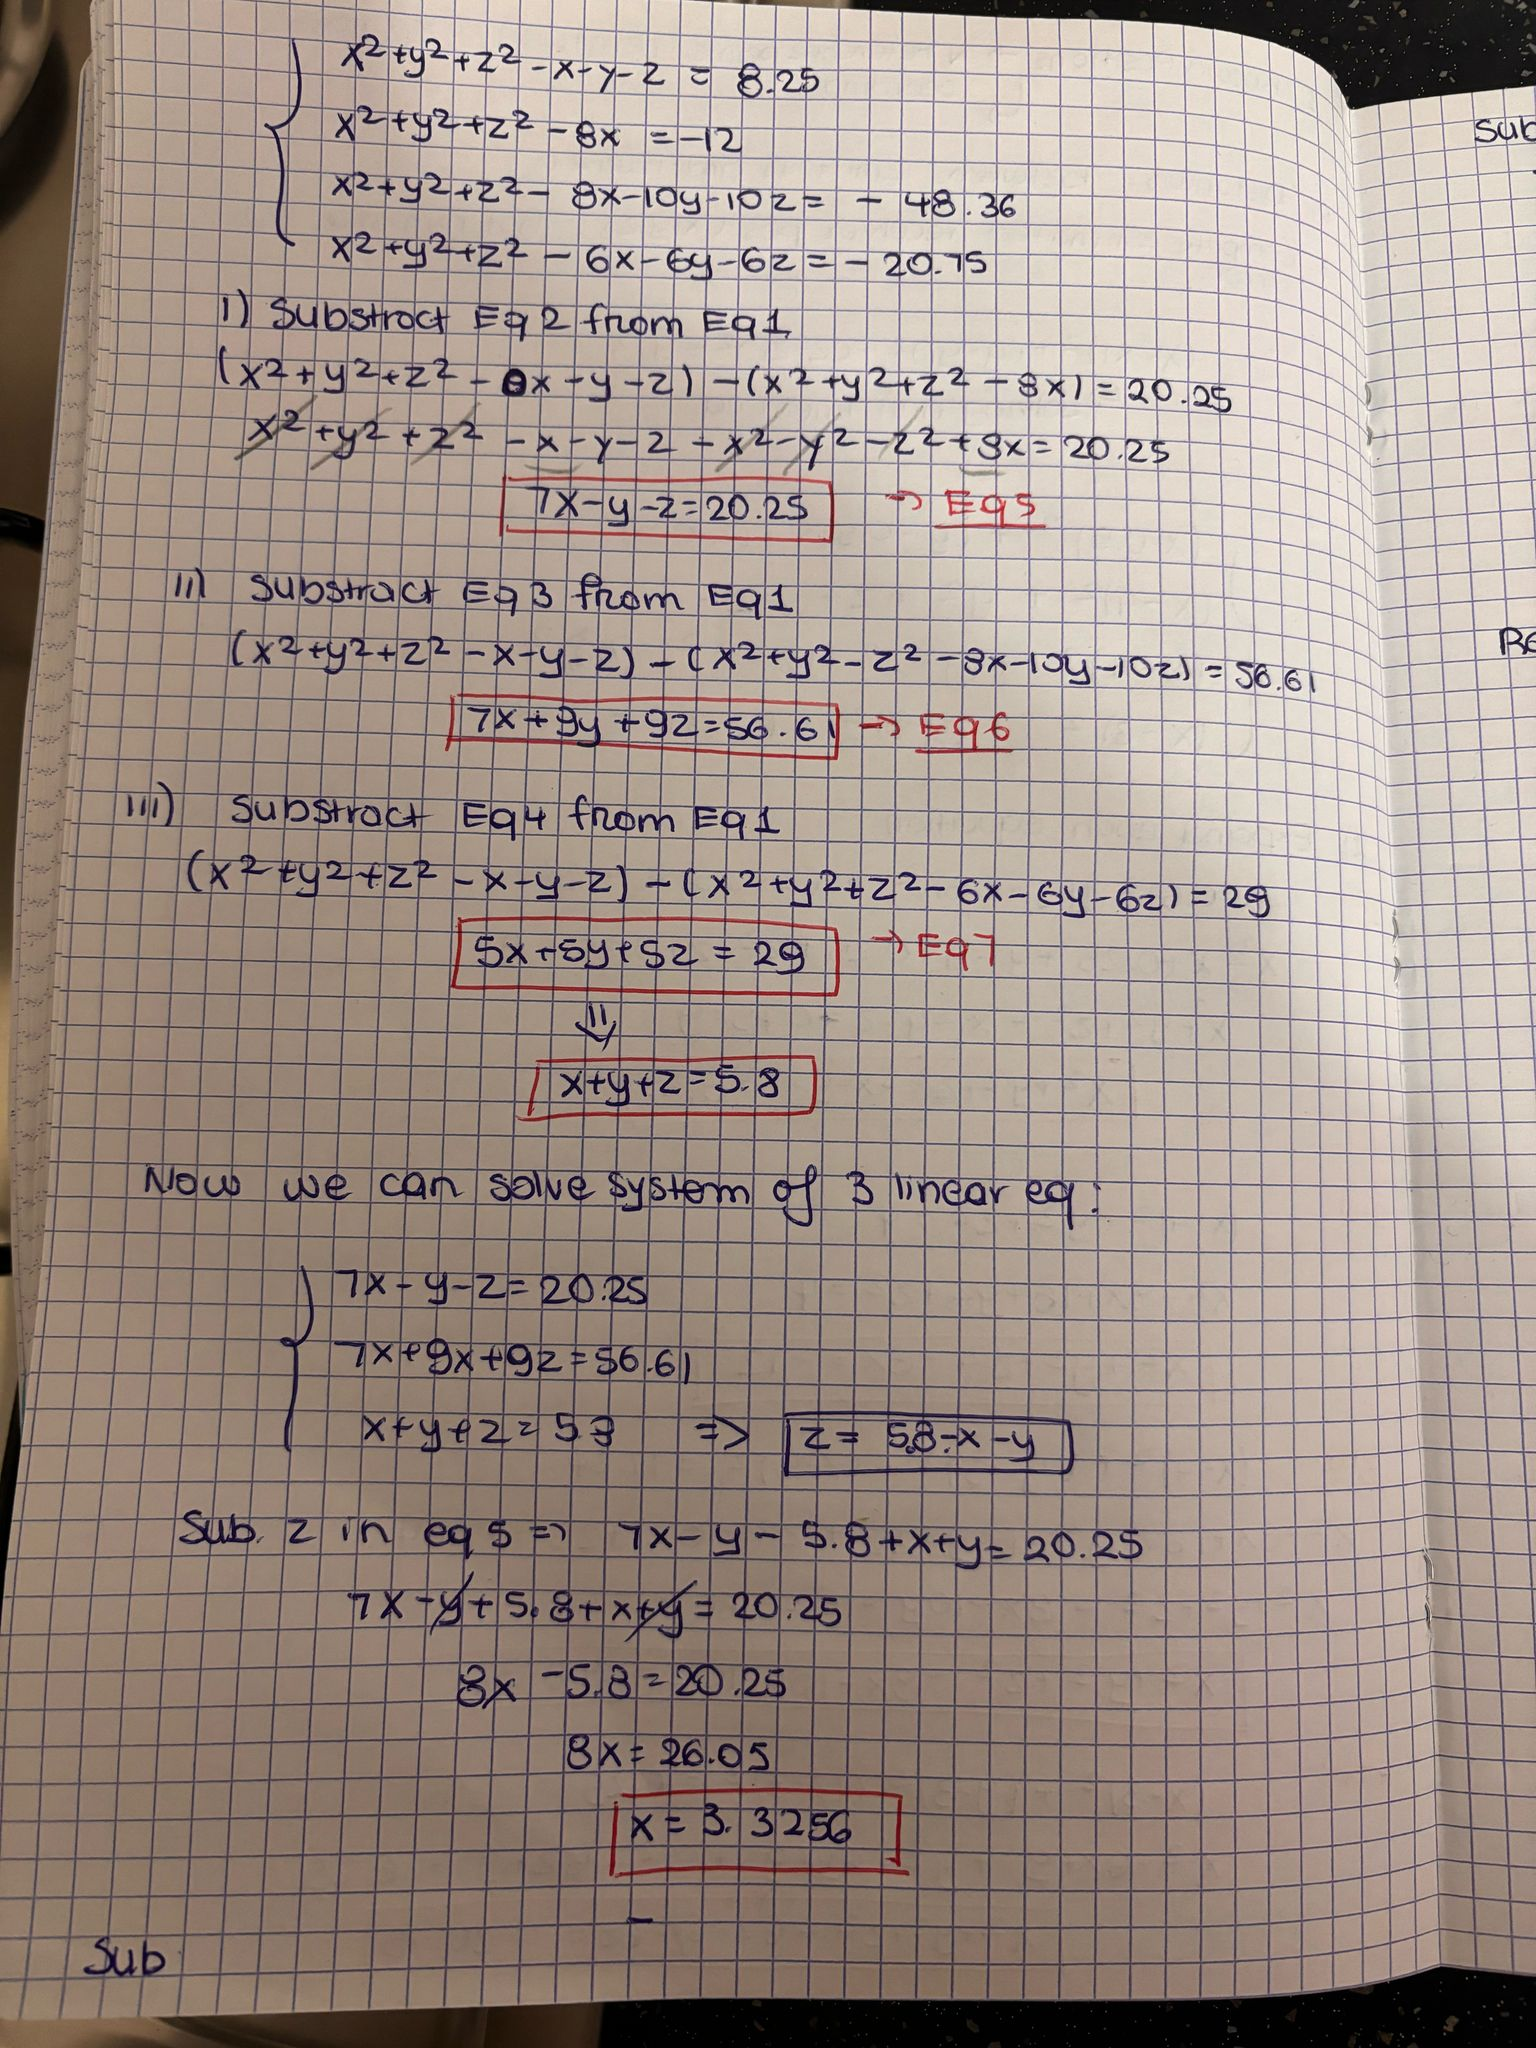 x²+y²+z²-x-y-z = 8.25
x²+y²+z²-8x = -12
x²+y²+z²-8x-10y-10z = -48.36
x²+y²+z²-6x-6y-6z = -20.75
I) Substract Eq2 from Eq1
(x²+y²+z²-x-y-z)-(x²+y²+z²-8x) = 20.25
x²+y²+z²-x-y-z-x²-y²-z²+8x = 20.25
7x-y-z=20.25 → Eq5
II) Substract Eq3 from Eq1
(x²+y²+z²-x-y-z)-(x²+y²-z²-8x-10y-10z) = 56.61
7x+9y+9z=56.61 → Eq6
III) Substract Eq4 from Eq1
(x²+y²+z²-x-y-z)-(x²+y²+z²-6x-6y-6z) = 29
5x+5y+5z = 29 → Eq7
⇓
x+y+z=5.8
Now we can solve system of 3 linear eq:
7x-y-z=20.25
7x+9x+9z=56.61
x+y+z=5.8 => z = 5.8-x-y
Sub. z in eq5 => 7x-y-5.8+x+y=20.25
7x-y+5.8+x+y=20.25
8x-5.8=20.25
8x=26.05
x=3.3256
-
Sub
Sub
Re